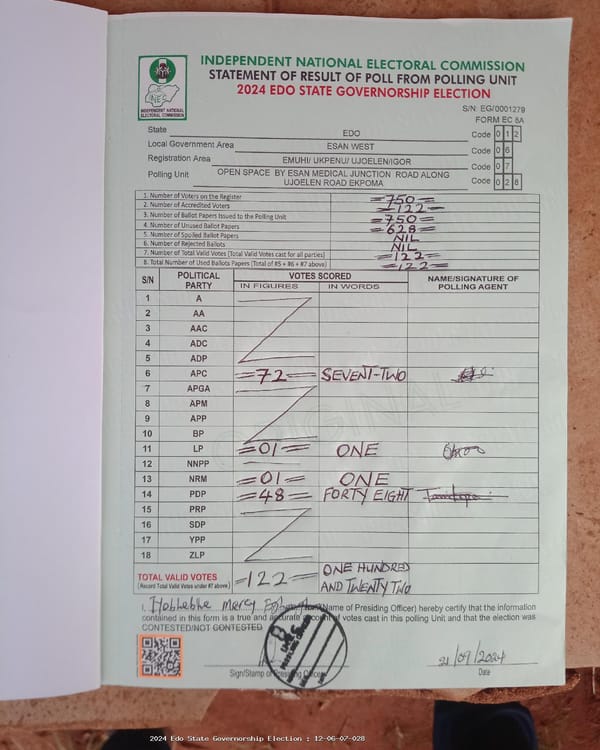 INDEPENDENT NATIONAL ELECTORAL COMMISSION
STATEMENT OF RESULT OF POLL FROM POLLING UNIT
2024 EDO STATE GOVERNORSHIP ELECTION
INEC
INDEPENDENT NATIONAL
ELECTORAL COMMISSION
S/N: EG/0001279
FORM EC 8A
State EDO Code 0 1 2
Local Government Area ESAN WEST Code 0 6
Registration Area EMUHI/ UKPENU/ UJOELEN/IGOR Code 0 7
Polling Unit OPEN SPACE BY ESAN MEDICAL JUNCTION ROAD ALONG Code 0 2 8
UJOELEN ROAD EKPOMA
1. Number of Voters on the Register =750=
2. Number of Accredited Voters =122=
3. Number of Ballot Papers Issued to the Polling Unit =750=
4. Number of Unused Ballot Papers =628=
5. Number of Spoiled Ballot Papers NIL
6. Number of Rejected Ballots NIL
7. Number of Total Valid Votes (Total Valid Votes cast for all parties) =122=
8. Total Number of Used Ballots Papers (Total of #5 + #6 + #7 above) =122=
S/N POLITICAL PARTY VOTES SCORED NAME/SIGNATURE OF POLLING AGENT
IN FIGURES IN WORDS
1 A
2 AA
3 AAC
4 ADC
5 ADP
6 APC =72= SEVENT-TWO
7 APGA
8 APM
9 APP
10 BP
11 LP =01= ONE
12 NNPP
13 NRM =01= ONE
14 PDP =48= FORTY EIGHT
15 PRP
16 SDP
17 YPP
18 ZLP
TOTAL VALID VOTES =122= ONE HUNDRED
(Record Total Valid Votes under #7 above) AND TWENTY TWO
I, Mercy (Name of Presiding Officer) hereby certify that the information
contained in this form is a true and accurate account of votes cast in this polling Unit and that the election was
CONTESTED/NOT CONTESTED
21/09/2024
Sign/Stamp of Presiding Officer Date
2024 Edo State Governorship Election : 12-06-07-028